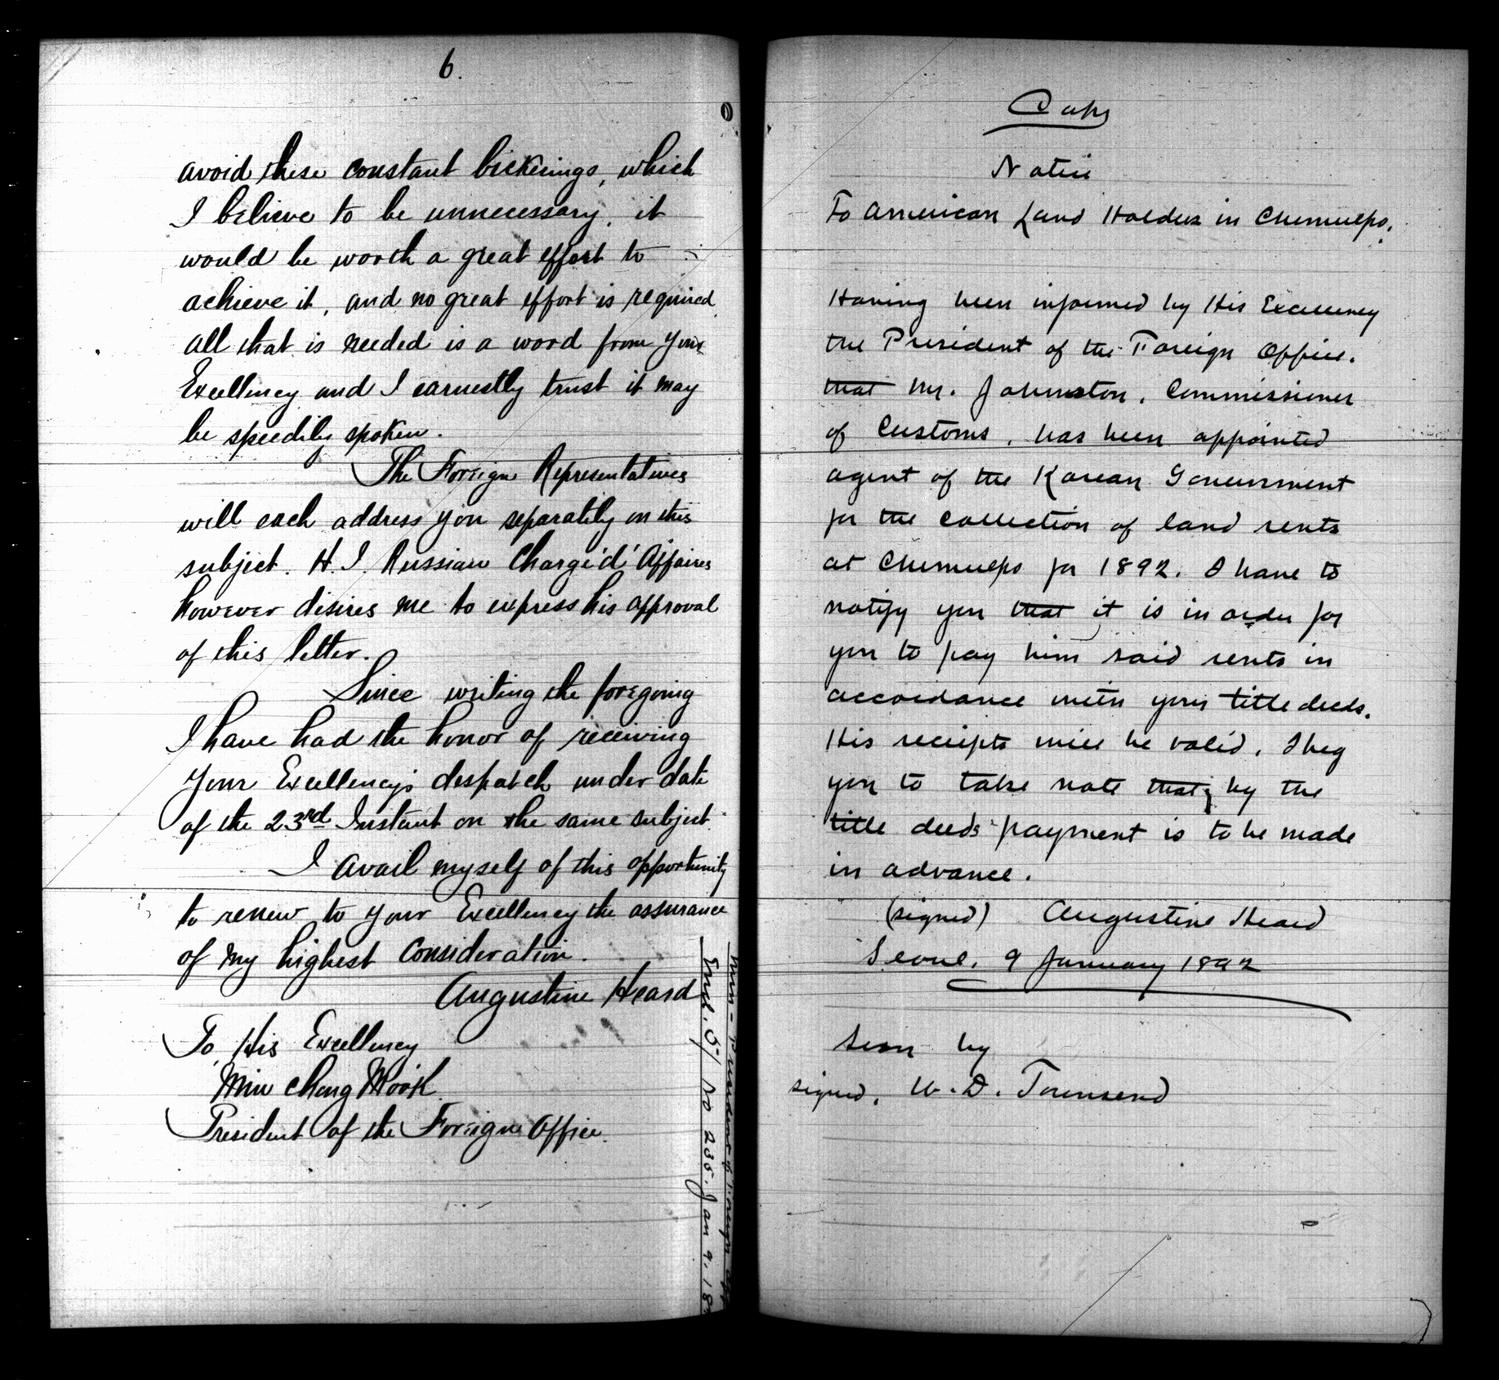 6.
avoid these constant bickerings, which
I believe to be unnecessary, it
would be worth a great effort to
achieve it, and no great effort is required,
all that is needed is a word from Your
Excellency and I earnestly trust it may
be speedily spoken.
The Foreign Representatives
will each address you separately on this
subject. H. I. Russian Chargé d' Affaires
however desires me to express his approval
of this letter.
Since writing the foregoing
I have had the honor of receiving
Your Excellency's despatch under date
of the 23rd Instant on the same subject.
I avail myself of this opportunity
to renew to Your Excellency the assurance
of my highest consideration.
Augustine Heard
To His Excellency
Min Chong Mook
President of the Foreign Office.
Encl. 5/ No 235. Jan 9. 18
President of Foreign Off
Copy
Notice
To American Land Holders in Chemulpo.
Having been informed by His Excellency
the President of the Foreign Office.
that Mr. Johnston, Commissioner
of Customs, has been appointed
agent of the Korean Government
for the collection of land rents
at Chemulpo for 1892. I have to
notify you that it is in order for
you to pay him said rents in
accordance with your title deeds.
His receipts will be valid. I beg
you to take note that, by the
title deeds payment is to be made
in advance.
(signed) Augustine Heard
Seoul, 9 January 1892
Seen by
signed, W. D. Townsend